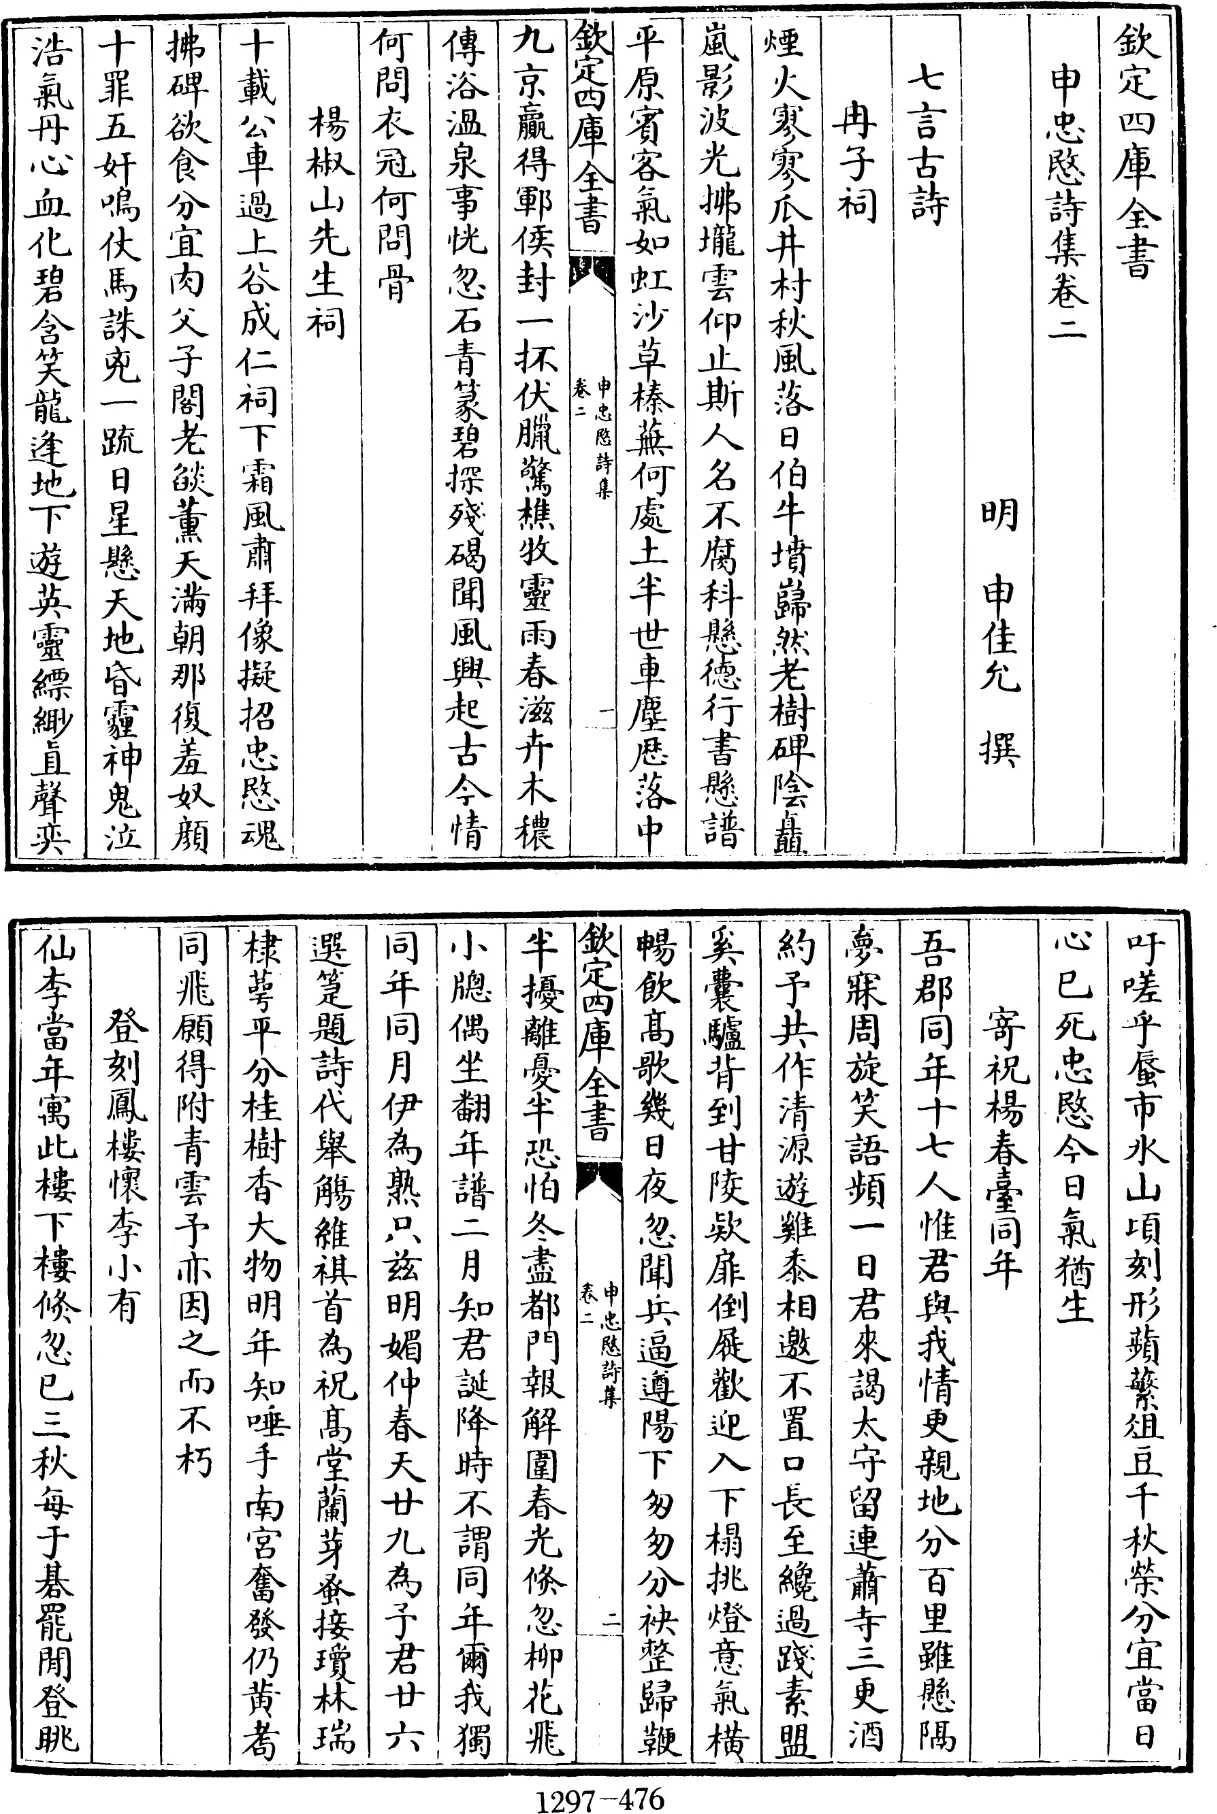 欽定四庫全書
申忠愍詩集卷二
明　申佳允　撰
七言古詩
冉子祠
煙火寥寥瓜井村秋風落日伯牛墳巋然老樹碑陰矗
嵐影波光拂壠雲仰止斯人名不腐科懸德行書懸譜
平原賓客氣如虹沙草榛蕪何處土半世車塵歴落中
欽定四庫全書
申忠愍詩集
卷二
一
九京贏得鄆侯封一抔伏臘驚樵牧靈雨春滋卉木穠
傳浴溫泉事恍忽石青篆碧探殘碣聞風興起古今情
何問衣冠何問骨
楊椒山先生祠
十載公車過上谷成仁祠下霜風肅拜像擬招忠愍魂
拂碑欲食分宜肉父子閣老燄薰天滿朝那復羞奴顔
十罪五奸鳴仗馬誅兇一疏日星懸天地昏霾神鬼泣
浩氣丹心血化碧含笑龍逢地下遊英靈縹緲直聲奕
吁嗟乎蜃市氷山頃刻形蘋蘩俎豆千秋榮分宜當日
心已死忠愍今日氣猶生
寄祝楊春臺同年
吾郡同年十七人惟君與我情更親地分百里雖懸隔
夢寐周旋笑語頻一日君來謁太守留連蕭寺三更酒
約予共作清源遊雞黍相邀不置口長至纔過踐素盟
奚囊驢背到甘陵欵扉倒屣歡迎入下榻挑燈意氣橫
暢飲髙歌幾日夜忽聞兵逼遵陽下匆匆分袂整歸鞭
欽定四庫全書
申忠愍詩集
卷二
二
半擾離憂半恐怕冬盡都門報解圍春光倏忽柳花飛
小牕偶坐翻年譜二月知君誕降時不謂同年爾我獨
同年同月伊為熟只兹明媚仲春天廿九為予君廿六
選箑題詩代舉觴維祺首為祝髙堂蘭芽蚤接瓊林瑞
棣萼平分桂樹香大物明年知唾手南宮奮發仍黄耉
同飛願得附青雲予亦因之而不朽
登刻鳳樓懷李小有
仙李當年寓此樓下樓倏忽已三秋每于碁罷閒登眺
1297-476